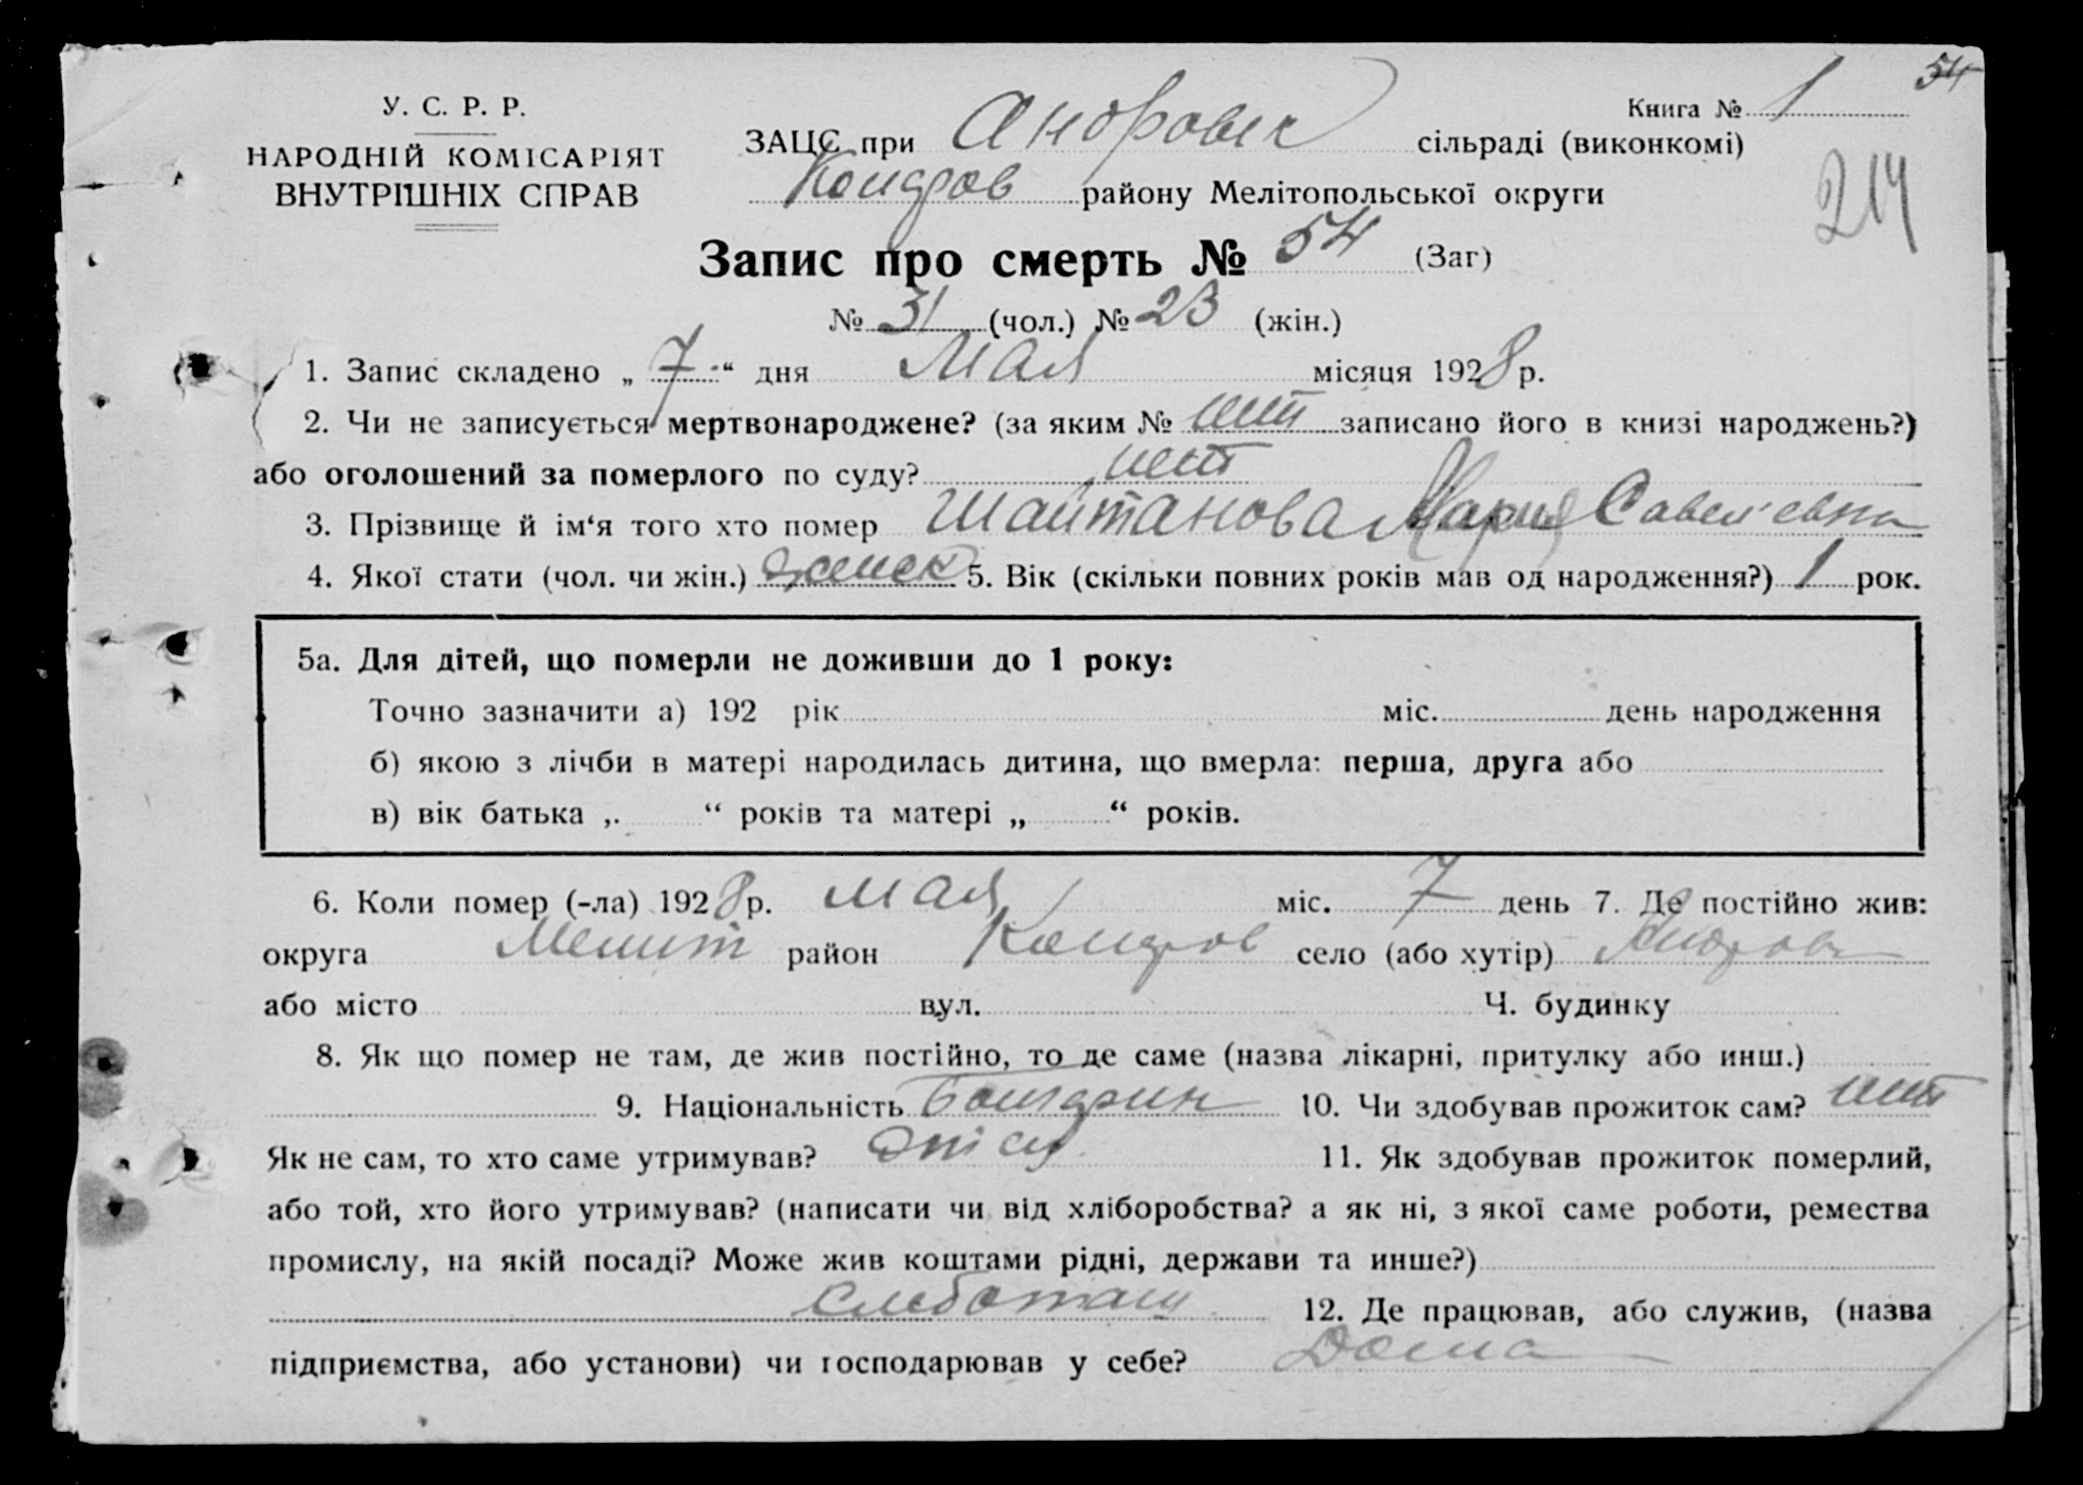 54
У. С. Р. Р.
НАРОДНІЙ КОМІСАРІЯТ
ВНУТРІШНІХ СПРАВ
Книга № 1
ЗАЦС при Андровск сільраді (виконкомі)
214
район у Мелітопольської округи
Запис про смерть № 54 (Заг)
№ 31 (чол.) № 23 (жін.)
1. Запис складено „ 7 “ дня Мая місяця 1928 р.
2. Чи не записується мертвонароджене? (за яким № нет записано його в книзі народжень?)
або оголошений за померлого по суду? нет
3. Прізвище й ім‘я того хто помер Шайтанова Мария Савел'евна
4. Якої стати (чол. чи жін.) женск 5. Вік (скільки повних років мав од народження?) 1 рок.
5а. Для дітей, що померли не доживши до 1 року:
Точно зазначити а) 192 рік міс. день народження
б) якою з лічби в матері народилась дитина, що вмерла: перша, друга або
в) вік батька „ “ років та матері „ “ років.
6. Коли помер (-ла) 1928 р. мая міс. 7 день 7. Де постійно жив:
округа Мелит район село (або хутір)
або місто вул. Ч. будинку
8. Як що помер не там, де жив постійно, то де саме (назва лікарні, притулку або инш.)
9. Національність Болгарин 10. Чи здобував прожиток сам? нет
Як не сам, то хто саме утримував? отец 11. Як здобував прожиток померлий,
або той, хто його утримував? (написати чи від хліборобства? а як ні, з якої саме роботи, ремества
промислу, на якій посаді? Може жив коштами рідні, держави та инше?)
12. Де працював, або служив, (назва
підприємства, або установи) чи господарював у себе? Дома